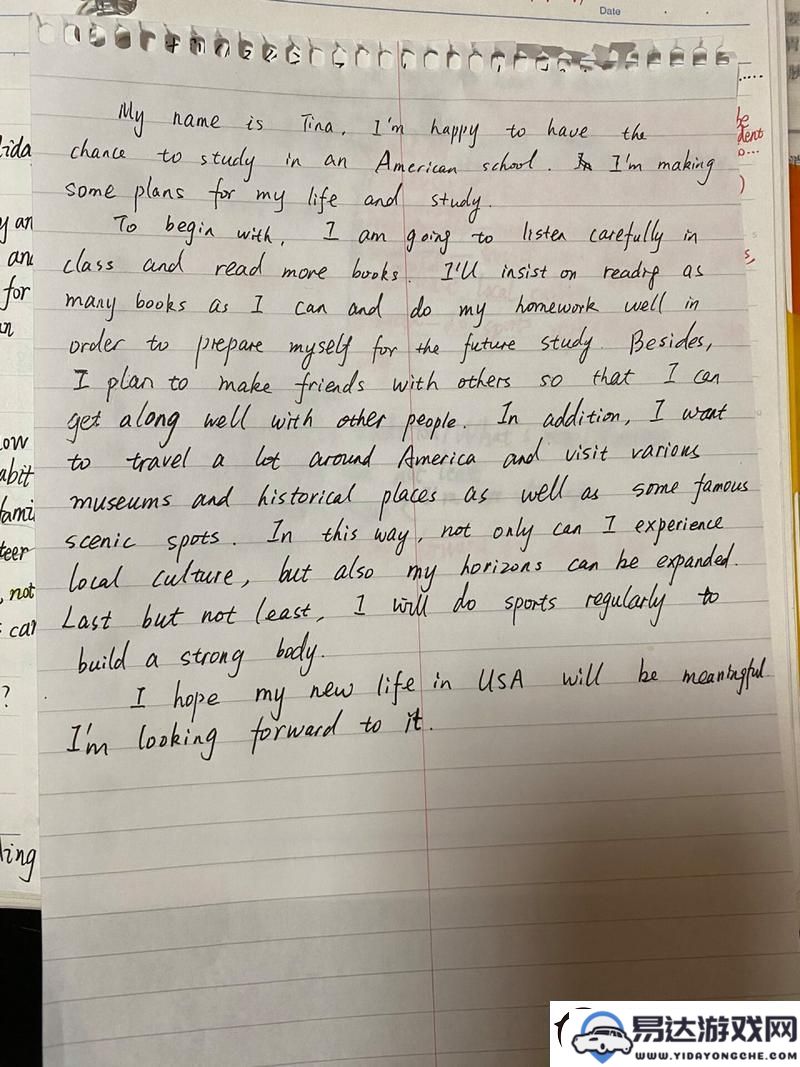 Date
My name is Tina. I'm happy to have the
chance to study in an American school. I'm making
some plans for my life and study.
To begin with, I am going to listen carefully in
class and read more books. I'll insist on readig as
many books as I can and do my homework well in
order to prepare myself for the future study. Besides,
I plan to make friends with others so that I can
get along well with other people. In addition, I want
to travel a lot around America and visit various
museums and historical places as well as some famous
scenic spots. In this way, not only can I experience
local culture, but also my horizons can be expanded.
Last but not least, I will do sports regularly to
build a strong body.
I hope my new life in USA will be meaningful
I'm looking forward to it.
易达游戏网
WWW.YIDAYONGCHE.COM